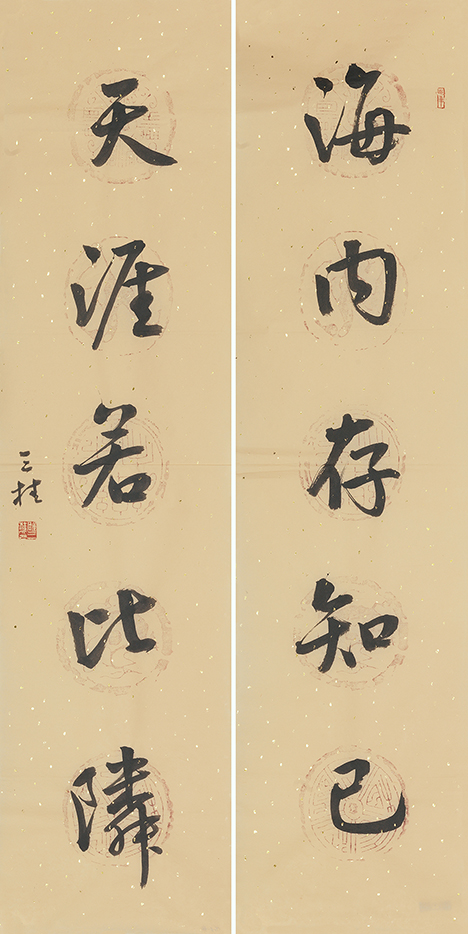 海内存知己
天涯若比隣
三桂